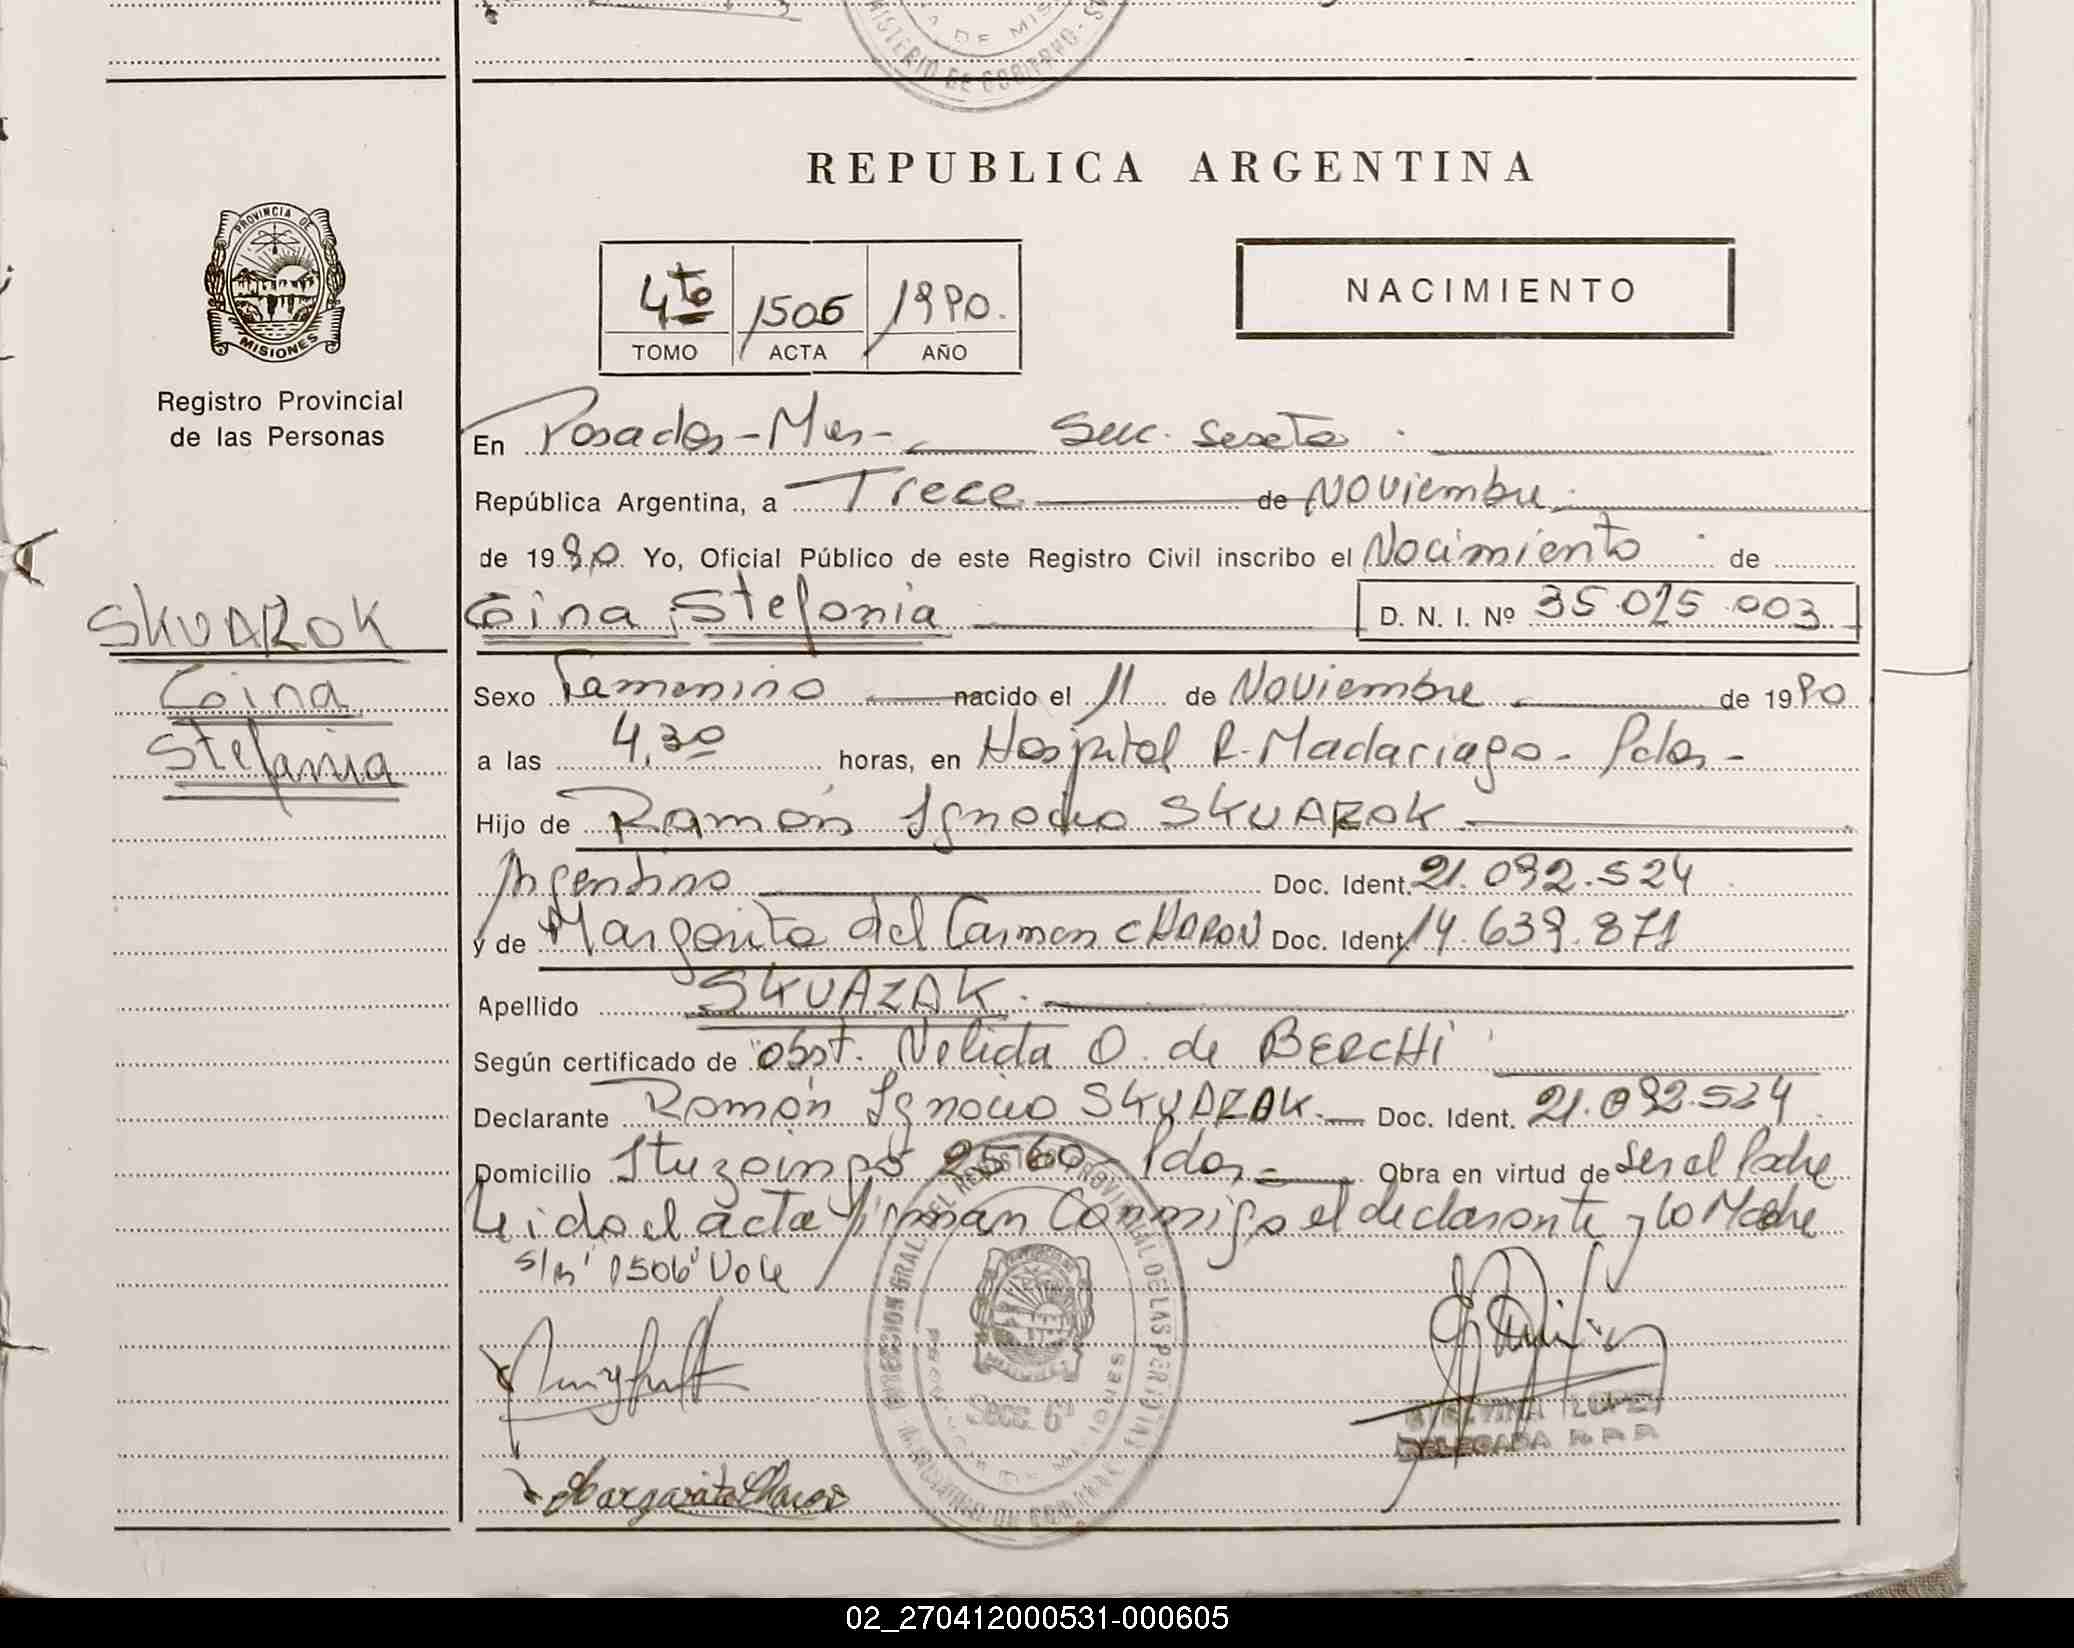 REPUBLICA ARGENTINA
PROVINCIA DE
MISIONES
Registro Provincial
de las Personas
4to 1506 1990.
TOMO ACTA AÑO
NACIMIENTO
En Posadas-Mnes- Secc. Sexta
República Argentina, a Trece de Noviembre
de 1990 Yo, Oficial Público de este Registro Civil inscribo el Nacimiento de
Gina Stefania D. N. I. Nº 35.015.003
SKUAZAK
Gina
Stefania
Sexo Femenino nacido el 11 de Noviembre de 1990
a las 4,30 horas, en Hospital R. Madariaga - Pdas -
Hijo de Ramón Ignacio SKUAZAK
Argentino Doc. Ident. 21.092.524
y de Margarita del Carmen Doc. Ident. 14.639.871
Apellido SKUAZAK
Según certificado de obst. Nelida O. de BERCHI
Declarante Ramón Ignacio SKUAZAK. Doc. Ident. 21.092.524
Domicilio Ituzaingó 2560 - Pdas - Obra en virtud de ser el Padre
Leida el acta firman conmigo el declarante y la Madre
s/n 1506 Vale
Secc. 6ª
DELEGADA R.P.P.
02_270412000531-000605